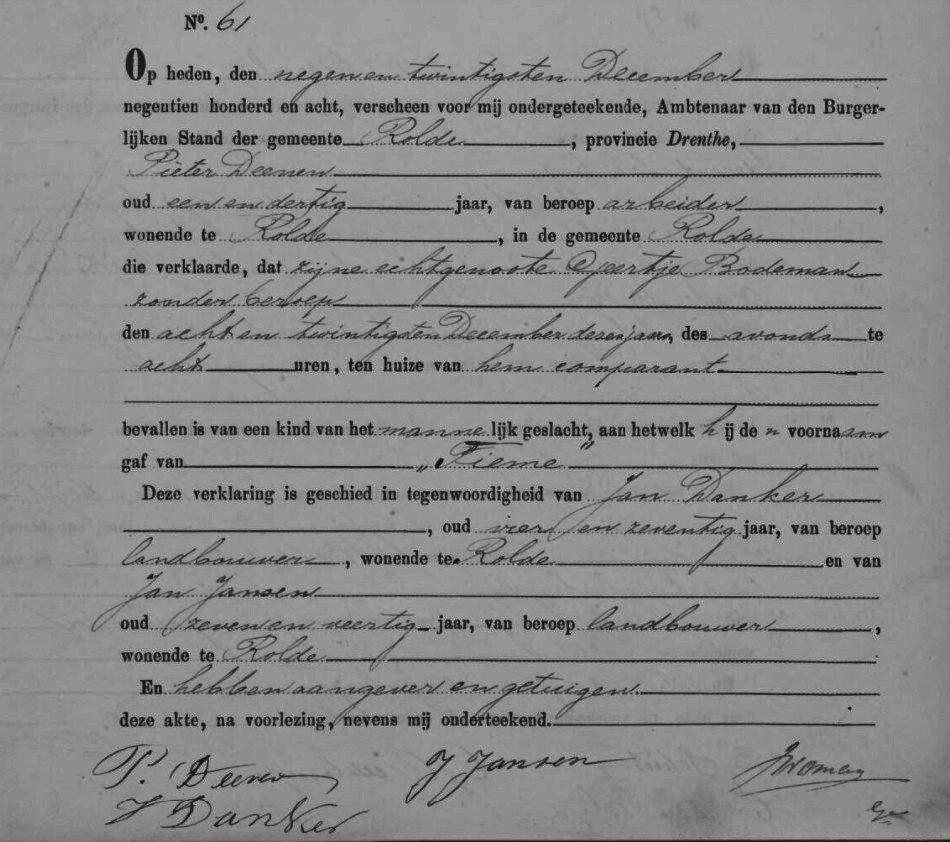 No. 61
Op heden, den negen en twintigsten December
negentien honderd en acht, verscheen voor mij ondergeteekende, Ambtenaar van den Burger-
lijken Stand der gemeente Rolde, provincie Drenthe,
Pieter Deenen
oud een en dertig jaar, van beroep arbeider,
wonende te Rolde, in de gemeente Rolde
die verklaarde, dat zijne echtgenoote Geertje Bodeman
zonder beroep
den acht en twintigsten December dezes jaars, des avonds te
acht uren, ten huize van hem comparant
bevallen is van een kind van het mannelijk geslacht, aan hetwelk hij de n voornaam
gaf van „Fieme”
Deze verklaring is geschied in tegenwoordigheid van Jan Danker
, oud vier en zeventig jaar, van beroep
landbouwer, wonende te Rolde en van
Jan Jansen
oud zeven en veertig jaar, van beroep landbouwer,
wonende te Rolde
En hebben aangever en getuigen
deze akte, na voorlezing, nevens mij onderteekend.
P. Deenen J Jansen
J Danker